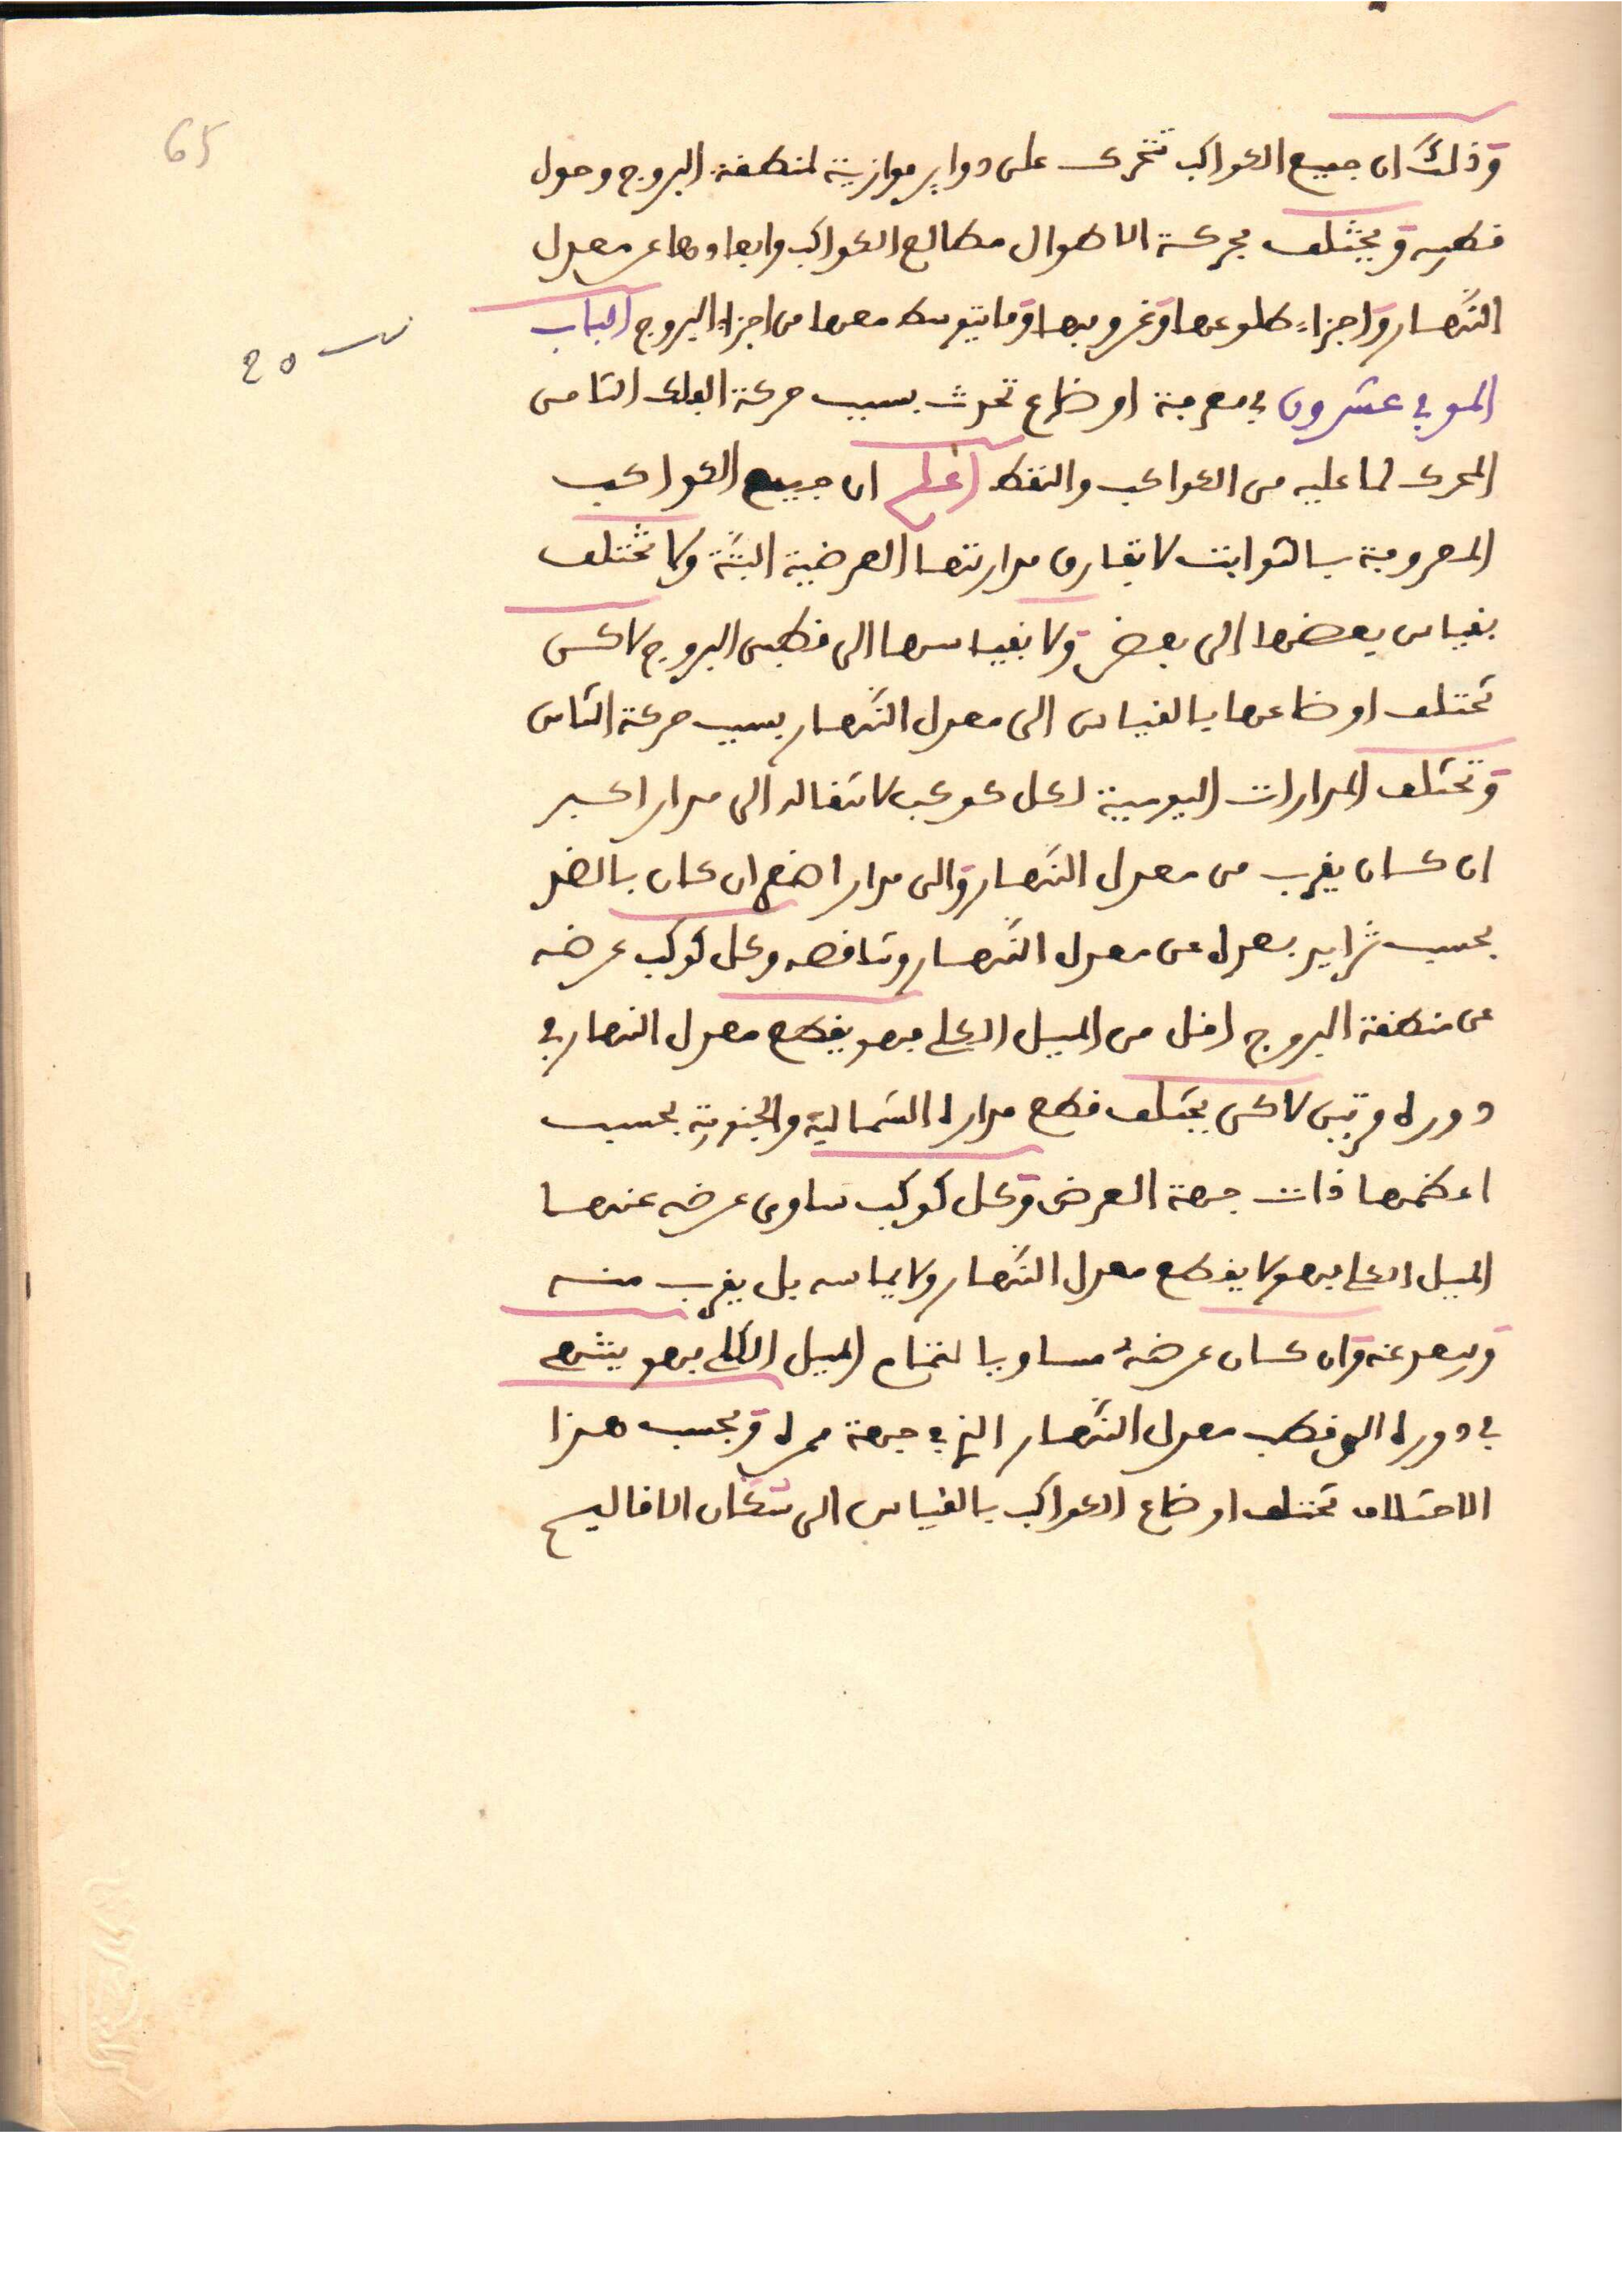 65
وذلك ان جميع الكواكب تتحرك على دواير موازية لمنطقة البروج وحول
قطبيه ويختلف بحركة الاطوال مطالع الكواكب وابعادها عن معدل
النهار واجزاء طلوعها وغروبها وما يتوسط معها من اجزاء البروج الباب
الموفي عشرون في معرفة اوضاع تحدث بسبب حركة الفلك الثامن
20
المحرك لما عليه من الكواكب والنقط اعلم ان جميع الكواكب
المعروفة بالثوابت لا تفارق مدارتها العرضية البتة ولا تختلف
بقياس بعضها الى بعض ولا بقياسها الى قطبى البروج لاكن
تختلف اوضاعها بالقياس الى معدل النهار بسبب حركة الثامن
وتختلف المدارات اليومية لكل كوكب لانتقاله الى مدار اكبر
ان كان يقرب من معدل النهار والى مدار اصغر ان كان بالضد
بحسب تزايد بعده عن معدل النهار وتناقصه وكل كوكب عرضه
عن منطقة البروج اقل من الميل الكلي فهو يقطع معدل النهار في
دوره مرتين لاكن يختلف قطع مداره الشمالية والجنوبية بحسب
اعظمها ذات جهة العرض وكل كوكب ساوى عرضه عندها
الميل الكلي فهو لا يقطع معدل النهار ولا يماسه بل يقرب منه
ويبعد عنه وان كان عرضه مساويا لتمام الميل الكلي فهو ينتهى
في دوره الى قطب معدل النهار الذي في جهة ممره وبحسب هذا
الاختلاف تختلف اوضاع الكواكب بالقياس الى سكان الاقاليم